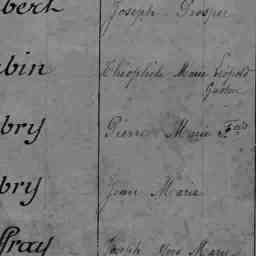 bert Joseph Prosper
bin Théophile Marie Léopold
Gaston
bry Pierre Marie Fois
bry Jean Marie
ffray Joseph Yves Marie